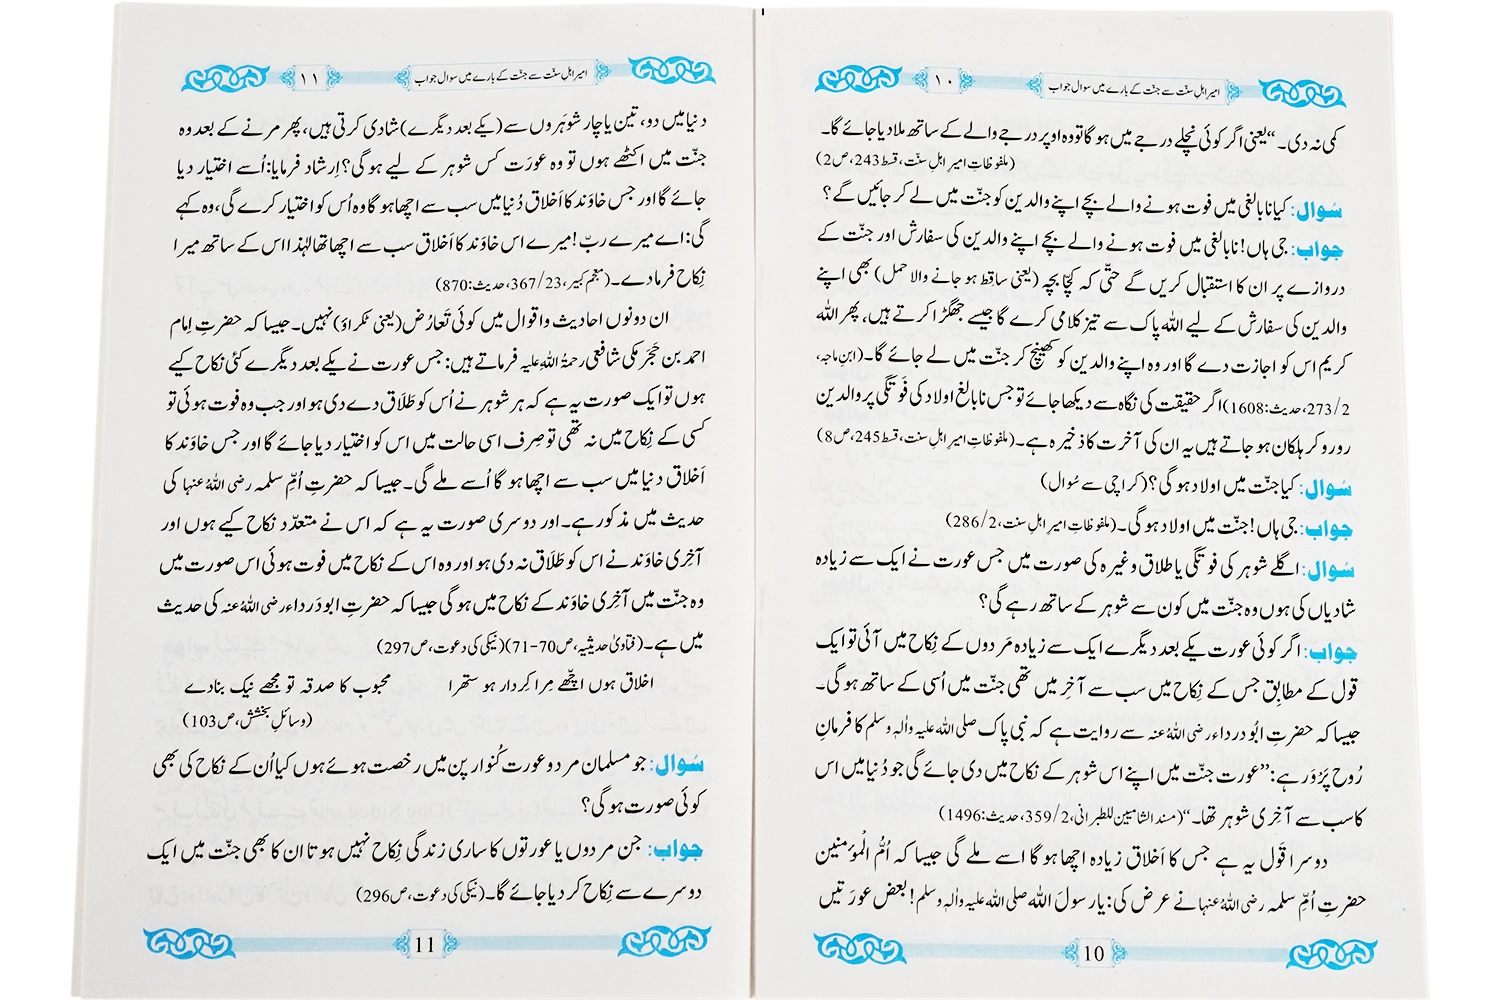 امیرِ اہلِ سنّت سے جنّت کے بارے میں سوال جواب
۱۰
کمی نہ دی۔“ یعنی اگر کوئی نچلے درجے میں ہو گا تو وہ اوپر درجے والے کے ساتھ ملا دیا جائے گا۔
(ملفوظاتِ امیرِ اہلِ سنّت، قسط 243، ص2)
سُوال: کیا نابالغی میں فوت ہونے والے بچے اپنے والدین کو جنّت میں لے کر جائیں گے؟
جواب: جی ہاں! نابالغی میں فوت ہونے والے بچے اپنے والدین کی سفارش اور جنّت کے
دروازے پر ان کا استقبال کریں گے حتّی کہ کچّا بچہ (یعنی ساقط ہو جانے والا حمل) بھی اپنے
والدین کی سفارش کے لیے اللہ پاک سے تیز کلامی کرے گا جیسے جھگڑا کرتے ہیں، پھر اللہ
کریم اس کو اجازت دے گا اور وہ اپنے والدین کو کھینچ کر جنّت میں لے جائے گا۔ (ابنِ ماجہ،
273/2، حدیث: 1608) اگر حقیقت کی نگاہ سے دیکھا جائے تو جس نابالغ اولاد کی فَوتگی پر والدین
رو رو کر ہلکان ہو جاتے ہیں یہ ان کی آخرت کا ذخیرہ ہے۔ (ملفوظاتِ امیرِ اہلِ سنّت، قسط 245، ص8)
سُوال: کیا جنّت میں اولاد ہو گی؟ (کراچی سے سُوال)
جواب: جی ہاں! جنّت میں اولاد ہو گی۔ (ملفوظاتِ امیرِ اہلِ سنت، 286/2)
سُوال: اگلے شوہر کی فوتگی یا طلاق وغیرہ کی صورت میں جس عورت نے ایک سے زیادہ
شادیاں کی ہوں وہ جنّت میں کون سے شوہر کے ساتھ رہے گی؟
جواب: اگر کوئی عورت یکے بعد دیگرے ایک سے زیادہ مَردوں کے نِکاح میں آئی تو ایک
قول کے مطابِق جس کے نِکاح میں سب سے آخِر میں تھی جنّت میں اُسی کے ساتھ ہو گی۔
جیسا کہ حضرتِ ابُو درداء رضی اللہُ عنہ سے روایت ہے کہ نبیِ پاک صلی اللہ علیہ واٰلہٖ وسلم کا فرمانِ
رُوح پَرْوَر ہے: ”عورت جنّت میں اپنے اس شوہر کے نکاح میں دی جائے گی جو دُنیا میں اس
کا سب سے آخِری شوہر تھا۔“ (مسند الشامیین للطبرانی، 359/2، حدیث: 1496)
دوسرا قَول یہ ہے جس کا اَخلاق زیادہ اچھا ہو گا اسے ملے گی جیسا کہ اُمُّ الْمؤمنین
حضرتِ اُمِّ سلمہ رضی اللہُ عنہا نے عرض کی: یا رسولَ اللہ صلی اللہ علیہ واٰلہٖ وسلم! بعض عورَتیں
10
امیرِ اہلِ سنّت سے جنّت کے بارے میں سوال جواب
۱۱
دنیا میں دو، تین یا چار شوہَروں سے (یکے بعد دیگرے) شادی کرتی ہیں، پھر مرنے کے بعد وہ
جنّت میں اکٹھے ہوں تو وہ عورَت کس شوہر کے لیے ہو گی؟ اِرشاد فرمایا: اُسے اختیار دیا
جائے گا اور جس خاوَند کا اَخلاق دُنیا میں سب سے اچھا ہو گا وہ اُس کو اختیار کرے گی، وہ کہے
گی: اے میرے ربّ! میرے اس خاوَند کا اَخلاق سب سے اچھا تھا لہٰذا اس کے ساتھ میرا
نِکاح فرما دے۔ (معجم کبیر، 367/23، حدیث: 870)
ان دونوں احادیث واقوال میں کوئی تَعارُض (یعنی ٹکراؤ) نہیں۔ جیسا کہ حضرتِ اِمام
احمد بن حَجَر مکی شافعی رحمۃُ اللہِ علیہ فرماتے ہیں: جس عورت نے یکے بعد دیگرے کئی نکاح کیے
ہوں تو ایک صورت یہ ہے کہ ہر شوہر نے اُس کو طَلَاق دے دی ہو اور جب وہ فوت ہوئی تو
کسی کے نِکاح میں نہ تھی تو صِرف اسی حالت میں اس کو اختیار دیا جائے گا اور جس خاوَند کا
اَخلاق دنیا میں سب سے اچھا ہو گا اُسے ملے گی۔ جیسا کہ حضرتِ اُمِّ سلمہ رضی اللہُ عنہا کی
حدیث میں مذکور ہے۔ اور دوسری صورت یہ ہے کہ اس نے متعدّد نکاح کیے ہوں اور
آخِری خاوَند نے اس کو طَلاق نہ دی ہو اور وہ اس کے نکاح میں فوت ہوئی اس صورت میں
وہ جنّت میں آخِری خاوند کے نکاح میں ہو گی جیسا کہ حضرتِ ابو دَرداء رضی اللہُ عنہ کی حدیث
میں ہے۔ (فتاویٰ حدیثیہ، ص70-71) (نیکی کی دعوت، ص297)
اخلاق ہوں اچّھے مِرا کِردار ہو ستھرا محبوب کا صدقہ تو مجھے نیک بنا دے
(وسائلِ بخشش، ص103)
سُوال: جو مسلمان مرد و عورت کُنوار پن میں رخصت ہوئے ہوں کیا اُن کے نکاح کی بھی
کوئی صورت ہو گی؟
جواب: جن مردوں یا عورتوں کا ساری زندگی نِکاح نہیں ہوتا ان کا بھی جنّت میں ایک
دوسرے سے نِکاح کر دیا جائے گا۔ (نیکی کی دعوت، ص296)
11